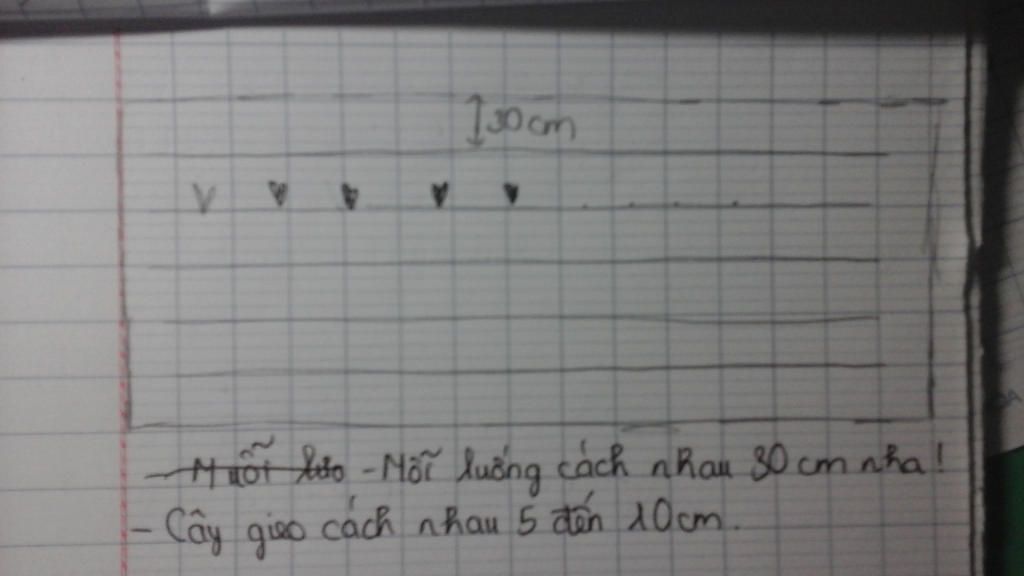 30cm
Muỗi luo - Mỗi luống cách nhau 30 cm nha!
- Cây gieo cách nhau 5 đến 10cm.